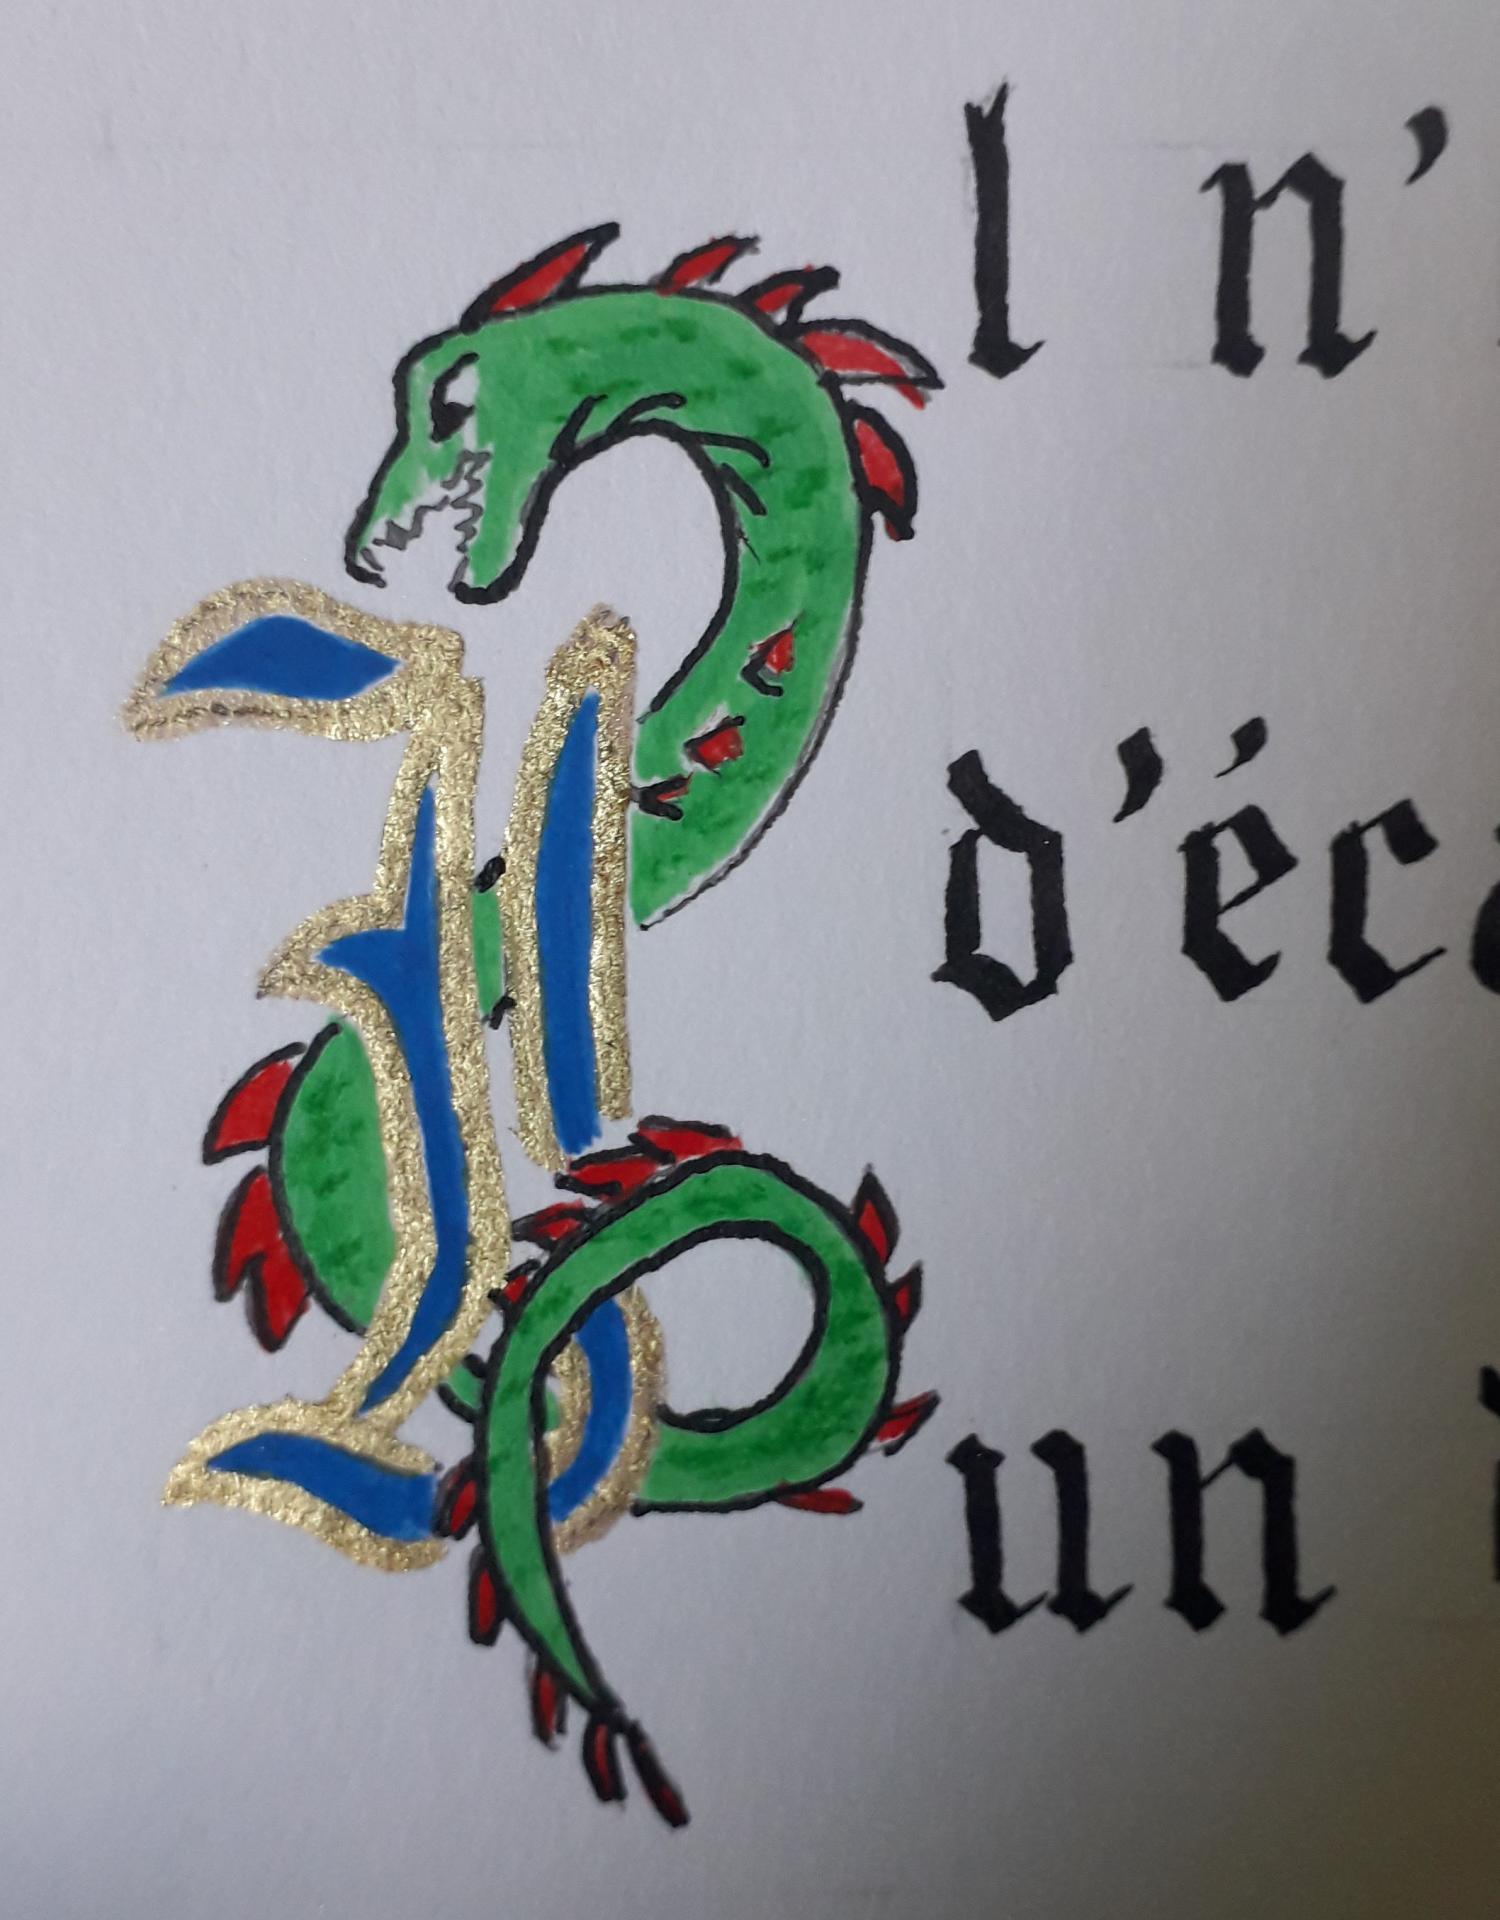 Il n'
d'éca
un